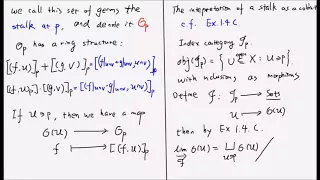 we call this set of germs the
stalk at p, and denote it 𝒪p
𝒪p has a ring structure:
[(f.u)]p + [(g.v)]p = [(f|u∩v + g|u∩v, u∩v)]p
[(f.u)]p · [(g.v)]p = [(f|u∩v · g|u∩v, u∩v)]p
If u ∋ p, then we have a map
𝒪(u) → 𝒪p
f ⟼ [(f.u)]p
The interpretation of a stalk as a colimit
c.f. Ex 1.4.C.
Index category 𝒥p
obj(𝒥p) = { u open ⊂ X : u ∋ p }
with inclusions as morphisms
Define 𝒥 : 𝒥p → Sets
u ↦ 𝒪(u)
then by Ex 1.4.C.
lim 𝒪(u) = ∐ 𝒪(u) /
𝒥p u∋p